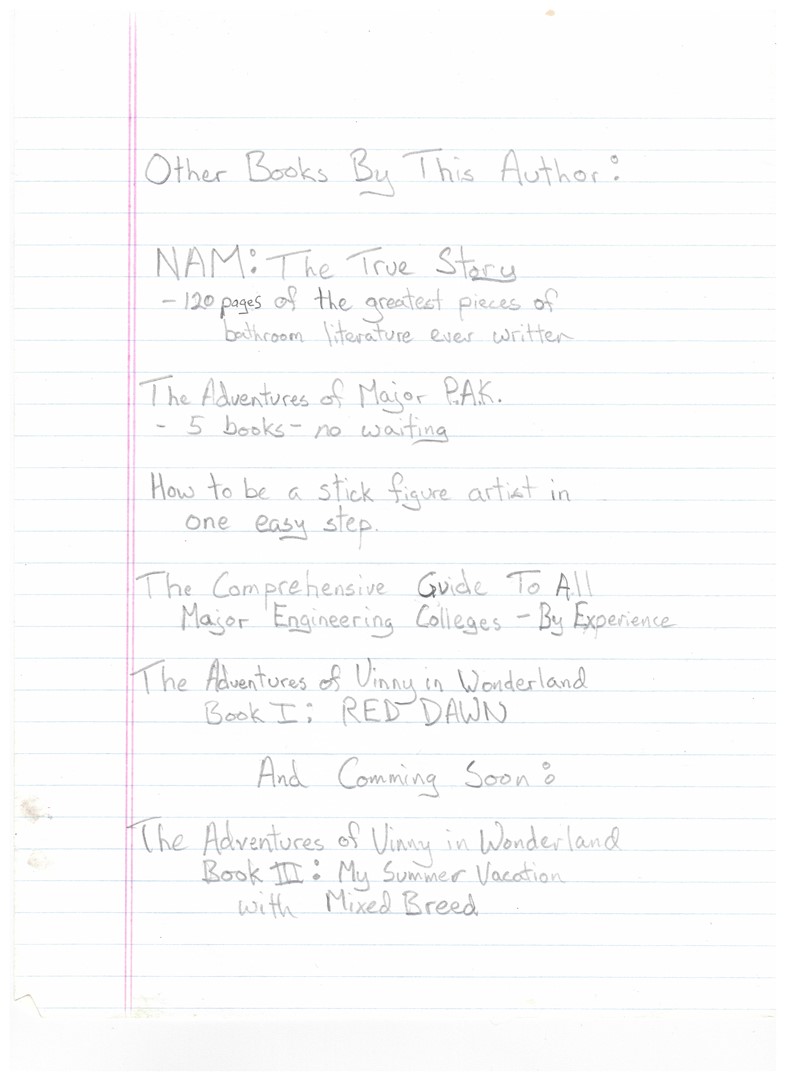 Other Books By This Author:
NAM: The True Story
- 120 pages of the greatest pieces of
bathroom literature ever written
The Adventures of Major P.A.K.
- 5 books - no waiting
How to be a stick figure artist in
one easy step.
The Comprehensive Guide To All
Major Engineering Colleges - By Experience
The Adventures of Vinny in Wonderland
Book I: RED DAWN
And Comming Soon:
The Adventures of Vinny in Wonderland
Book III: My Summer Vacation
with Mixed Breed